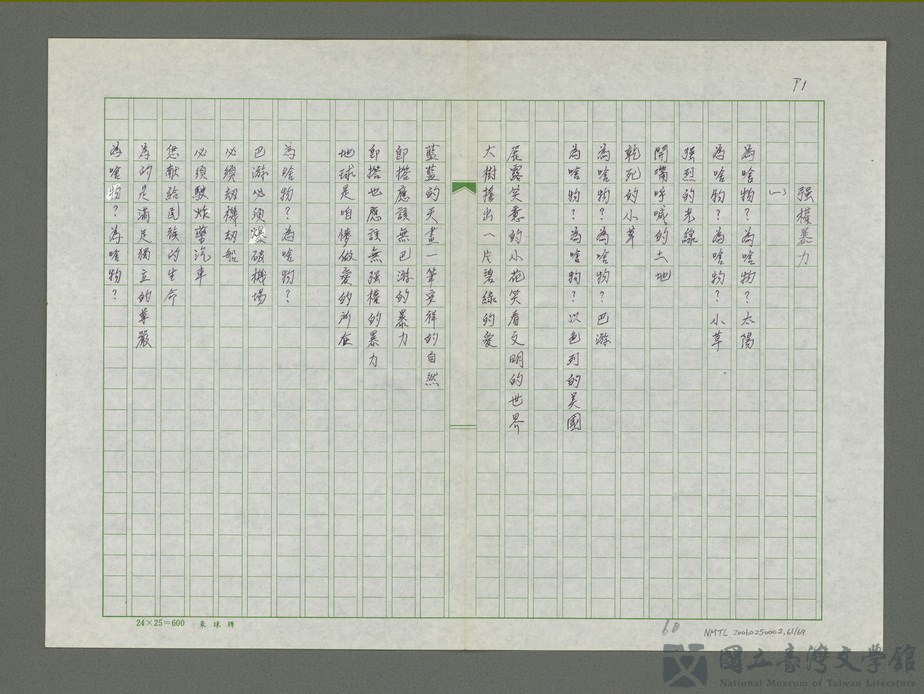 P1
強權暴力
(一)
為啥物?為啥物?太陽
為啥物?為啥物?小草
強烈的光線
開嘴呼喊的土地
乾死的小草
為啥物?為啥物?巴游
為啥物?為啥物?以色列的美國
展露笑意的小花笑看文明的世界
大樹撐出一片碧綠的愛
藍藍的天畫一筆安祥的自然
即擔應該無巴游的暴力
即擔也應該無強權的暴力
地球是咱儂做愛的所在
為啥物?為啥物?
巴游必須爆破機場
必須刼機刼船
必須駛炸藥汽車
您獻給民族的生命
為的是滿足獨立的尊嚴
為啥物?為啥物?
24×25=600
60
NMTL 20010250002,61/69
國立臺灣文學館
National Museum of Taiwan Literature